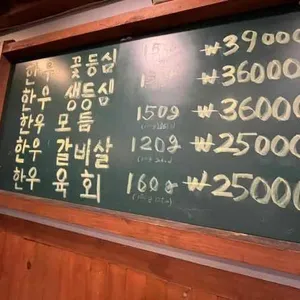 한우 꽃등심 ₩39000
한우 생등심 ₩36000
한우 모듬 150g ₩36000
한우 갈비살 120g ₩25000
한우 육회 160g ₩25000